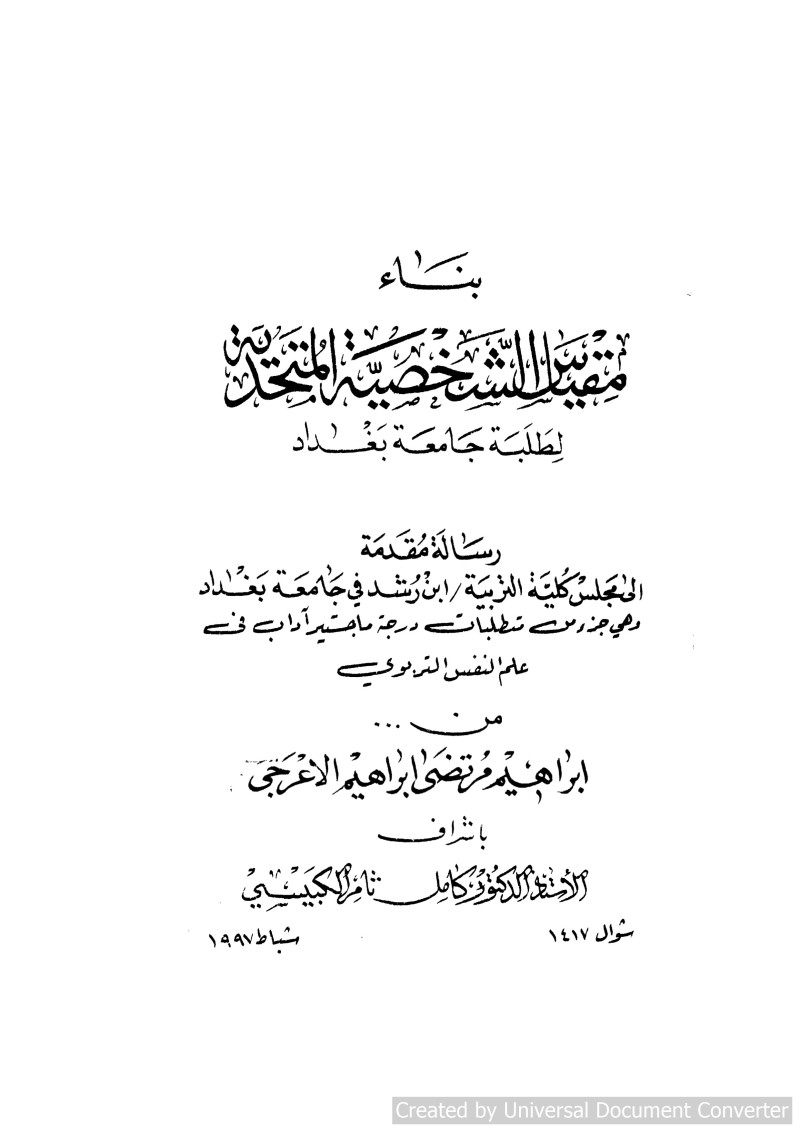 بناء
مقياس الشخصية المتحدية
لطلبة جامعة بغداد
رسالة مقدمة
الى مجلس كلية التربية / ابن رشد في جامعة بغداد
وهي جزء من متطلبات درجة ماجستير آداب في
علم النفس التربوي
من ...
ابراهيم مرتضى ابراهيم الاعرجي
باشراف
الأستاذ الدكتور كامل ثامر الكبيسي
شوال ١٤١٧ شباط ١٩٩٧
Created by Universal Document Converter